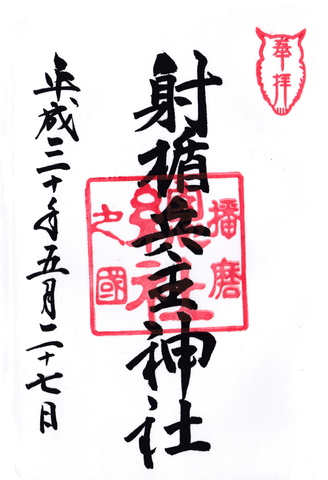 奉拝
射楯兵主神社
播磨
總社
之國
平成三十年五月二十七日